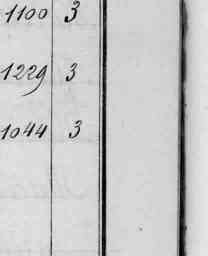 1100 3
1229 3
1044 3